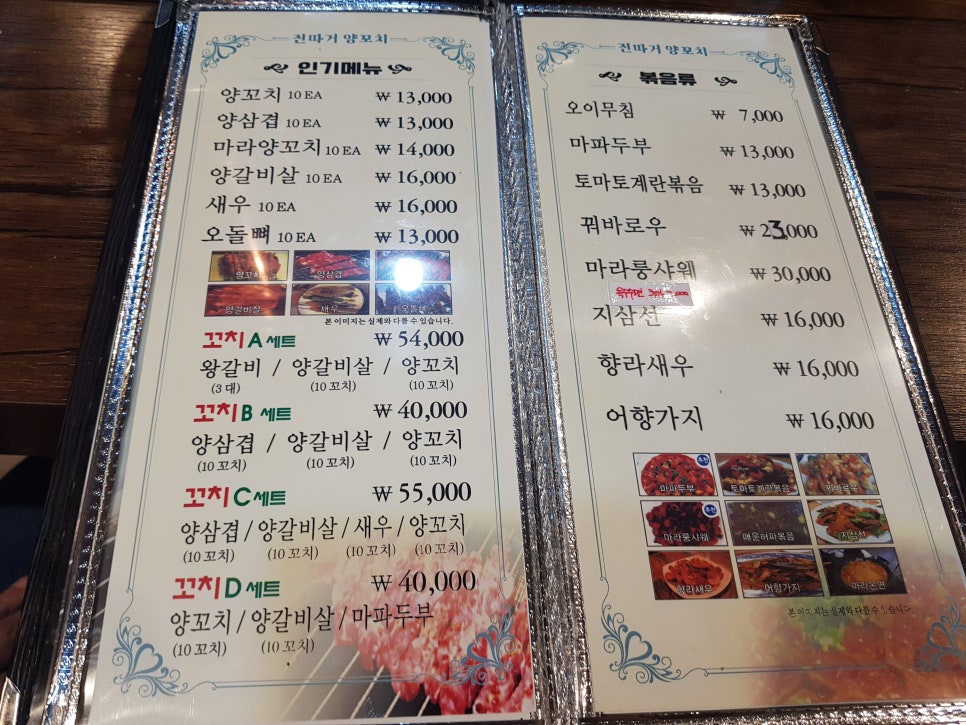 진따거 양꼬치
인기메뉴
양꼬치 10 EA ₩ 13,000
양삼겹 10 EA ₩ 13,000
마라양꼬치 10 EA ₩ 14,000
양갈비살 10 EA ₩ 16,000
새우 10 EA ₩ 16,000
오돌뼈 10 EA ₩ 13,000
양꼬치 양삼겹
양갈비살 새우 오돌뼈
본 이미지는 실제와 다를 수 있습니다.
꼬치 A 세트 ₩ 54,000
왕갈비 / 양갈비살 / 양꼬치
(3 대) (10 꼬치) (10 꼬치)
꼬치 B 세트 ₩ 40,000
양삼겹 / 양갈비살 / 양꼬치
(10 꼬치) (10 꼬치) (10 꼬치)
꼬치 C 세트 ₩ 55,000
양삼겹 / 양갈비살 / 새우 / 양꼬치
(10 꼬치) (10 꼬치) (10 꼬치) (10 꼬치)
꼬치 D 세트 ₩ 40,000
양꼬치 / 양갈비살 / 마파두부
(10 꼬치) (10 꼬치)
진따거 양꼬치
볶음류
오이무침 ₩ 7,000
마파두부 ₩ 13,000
토마토계란볶음 ₩ 13,000
꿔바로우 ₩ 23,000
마라룽샤웨 ₩ 30,000
지삼선 ₩ 16,000
향라새우 ₩ 16,000
어향가지 ₩ 16,000
마파두부 토마토계란볶음 꿔바로우
마라룽샤웨 매운허파볶음 지삼선
향라새우 어향가지 마라온면
본 이미지는 실제와 다를 수 있습니다.